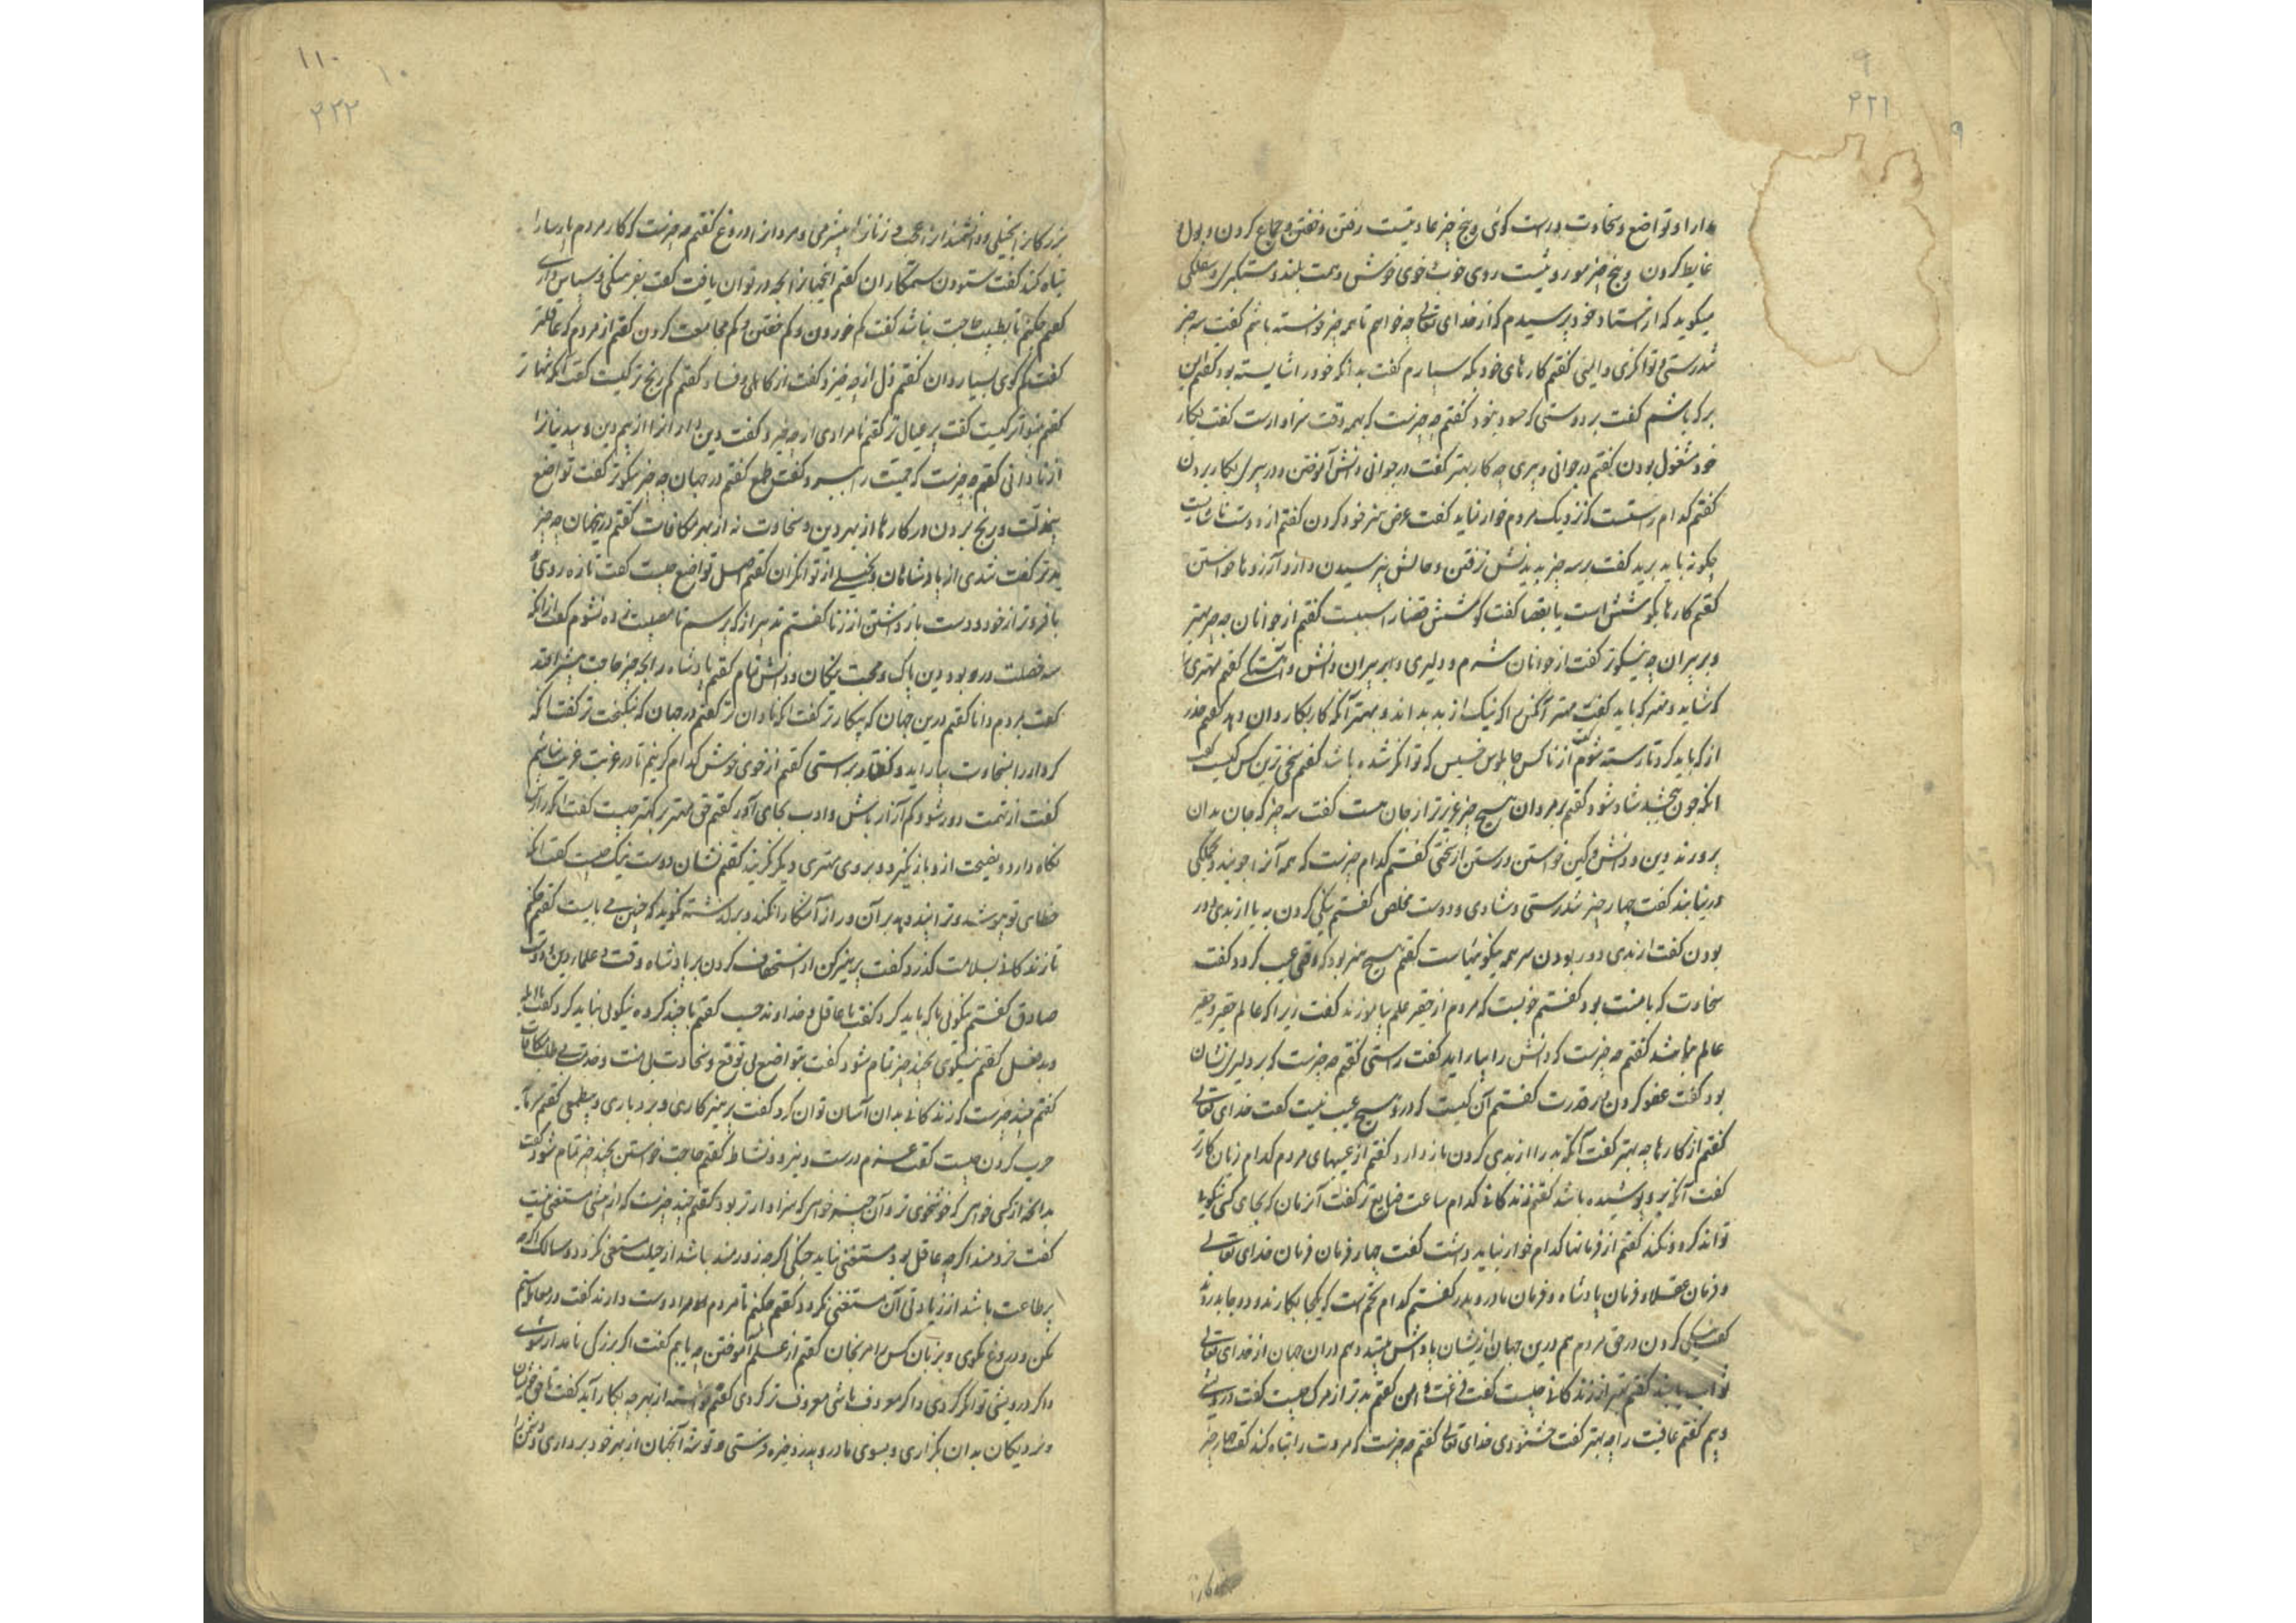 ۹
۲۲۱
۹
مدارا و تواضع و سخاوت و راست گوئی و پنج چیز عادتیست رفتن و خفتن و جماع کردن و بول و
غایط کردن و پنج چیز موروثیست روی خوب و خوی خوش و همت بلند و متکبری و سفلگی
میگوید که از استاد خود پرسیدم که از خدای تعالی چه خواهم تا همه چیز خواسته باشم گفت سه چیز
تندرستی و توانگری و ایمنی گفتم کارهای خود بکه سپارم گفت بدانکه خود را شایسته بود گفتم ایمن
بر که باشم گفت بر دوستی که حسود نبود گفتم چه چیزست که بهمه وقت سزاوارست گفت بکار
خود مشغول بودن گفتم در جوانی و پیری چه کار بهتر گفت در جوانی دانش آموختن و در پیری بکار بردن
گفتم کدام راستست که نزدیک مردم خوار نماید گفت عرض هنر خود کردن گفتم از دوست ناشایست
چگونه باید برید گفت بسه چیز بدیدنش نرفتن و حالش نپرسیدن و از و آرزوها خواستن
گفتم کارها بکوشش است یا بقضا گفت کوشش قضا را سببست گفتم از جوانان چه چیز بهتر
و بر پیران چه نیکوتر گفت از جوانان شرم و دلیری و بر پیران دانش و آهستگی گفتم مهتری را
که شاید و مهتر که باید گفت مهتر آنکس که نیک از بد بداند و مهتر آنکه کار بکاردان دهد گفتم حذر
از که باید کرد تا رسته شوم گفت از ناکس چاپلوس خسیس که توانگر شده باشد گفتم سخی ترین کس کیست گفت
آنکه چون ببخشد شاد شود گفتم بر مردان هیچ چیز عزیزتر از جان هست گفت سه چیز که جان بدان
پرورند دین و دانش و کین خواستن و رستن از سختی گفتم کدام چیزست که همه آنرا جویند و بجملگی
در نیابند گفت چهار چیز تندرستی و شادی و دوست مخلص گفتم نیکی کردن به یا از بدی دور
بودن گفت از بدی دور بودن سر همه نیکوئیهاست گفتم هیچ هنر بود که وقتی عیب گردد گفت
سخاوت که با منت بود گفتم چونست که مردم از حقیر علم نیاموزند گفت زیرا که عالم حقیر و حقیر
عالم نباشد گفتم چه چیزست که دانش را بیاراید گفت راستی گفتم چه چیزست که بر دلیری نشان
بود گفت عفو کردن بهر قدرت گفتم آن کیست که درو هیچ عیب نیست گفت خدای تعالی
گفتم از کارها چه بهتر گفت آنکه بد را از بدی کردن باز دارد گفتم از عیبهای مردم کدام زیان کارتر
گفت آنکه برو پوشیده باشد گفتم از زندگانی کدام ساعت ضایع تر گفت آن زمان که بجای کسی نیکویی
تواند کرد و نکند گفتم از فرمانها کدام خوار نباید داشت گفت چهار فرمان فرمان خدای تعالی
و فرمان عقلا و فرمان پادشاه و فرمان مادر و پدر گفتم کدام تخمست که یکجا بکارند و دو جا بدروند
گفت نیکی کردن در حق مردم هم درین جهان از ایشان پاداش بینند و هم در آن جهان از خدای تعالی
ثواب یابند گفتم بهتر از زندگانی چیست گفت فراغت و امن گفتم بدتر از مرگ چیست گفت درویشی
و بیم گفتم عاقبت را چه بهتر گفت خشنودی خدای تعالی گفتم چه چیزست که مروت را تباه کند گفت چهار چیز
۱۱۰
۱۰
۲۲۲
بزرگانرا بخیلی و دانشمندانرا عجب و زنانرا بیشرمی و مردانرا دروغ گفتم چه چیزست که کار مردم پارسا را
تباه کند گفت ستودن ستمکاران گفتم این جهانرا بچه در توان یافت گفت بفرهنگی و سپاس داری
گفتم چکنم تا بطبیب حاجت نباشد گفت کم خوردن و کم خفتن و کم مجامعت کردن گفتم از مردم که عاقلتر
گفت کم گوی بسیار دان گفتم ذل از چه خیزد گفت از کاهلی و فساد گفتم کم رنج تر کیست گفت آنکه تنهاتر
گفتم رنجورتر کیست گفت پرعیال تر گفتم نامرادی از چه خیزد گفت
از نادانی گفتم چه چیزست که حمیت را ببرد گفت طمع گفتم در جهان چه چیز نیکوتر گفت تواضع
بیمذلت و رنج بردن در کارها از بهر دین و سخاوت نه از بهر مکافات گفتم در جهان چه چیز
بدتر گفت تندی از پادشاهان و بخیلی از توانگران گفتم اصل تواضع چیست گفت تازه روی
با فروتر از خود و دست باز داشتن از زنا گفتم تدبیر از که پرسم تا مصیبت زده نشوم گفت از آنکه
سه خصلت درو بود دین پاک و محبت نیکان و دانش تمام گفتم پادشاه را بچه چیز حاجت بیشتر افتد
گفت بمردم دانا گفتم درین جهان که بیکارتر گفت آنکه نادان تر گفتم در جهان که نیکبخت تر گفت آنکه
کردار را بسخاوت بیاراید و گفتار براستی گفتم از خوی خوش کدام گزینم تا در غربت غریب نباشم
گفت از تهمت دور شو و کم آزار باش و ادب بجای آور گفتم حق مهتر بر کهتر چیست گفت آنکه رازش
نگاه دارد و نصیحت ازو باز نگیرد و بر وی مهتری دیگر نگزیند گفتم نشان دوست نیک چیست گفت آنکه
خطای تو بپوشد و ترا پند دهد بر آن و راز آشکارا نکند و بر گذشته نگوید که چنین می بایست گفتم چکنم
تا زندگانی بسلامت گذرد گفت پرهیز کن از استخفاف کردن بر پادشاه وقت و علماء دین و دوست
صادق گفتم نیکوئی با که باید کرد گفت با عاقل و خداوند حسب گفتم با چند گروه نیکوئی نباید کرد گفت با ابله
و بد فعل گفتم نیکوی بچند چیز تمام شود گفت بتواضع بی توقع و سخاوت بی منت و خدمت بی طلب مکافات
گفتم چند چیزست که زندگانی بدان آسان توان کرد گفت پرهیزکاری و بردباری و بیطمعی گفتم سرمایه
حرب کردن چیست گفت عزم درست و نیرو و نشاط گفتم حاجت خواستن بچند چیز تمام شود گفت
بدانکه از کسی خواهی که خوشخوی تر و آن چیز خواهی که سزاوارتر بود گفتم چند چیزست که از چیزی مستغنی نیست
گفت خردمند اگر چه عاقل بود از مشورت مستغنی نباید جنگی اگر چه زورمند باشد از حیلت مستغنی نگردد و سالک اگر چه
پر طاعت باشد از زیادتی آن مستغنی نگردد گفتم چکنم تا مردم مرا دوست دارند گفت در معامله ستم
مکن و دروغ مگوی و بزبان کس را مرنجان گفتم از علم آموختن چه یابم گفت اگر بزرگی نامدار شوی
و اگر درویشی توانگر گردی و اگر معروف باشی معروف تر گردی گفتم خواسته از بهر چه بکار آید گفت تا حق خویشان
و نزدیکان بدان بگزاری و بسوی مادر و پدر ذخیره فرستی و توشه آنجهان از بهر خود برداری و دشمن را